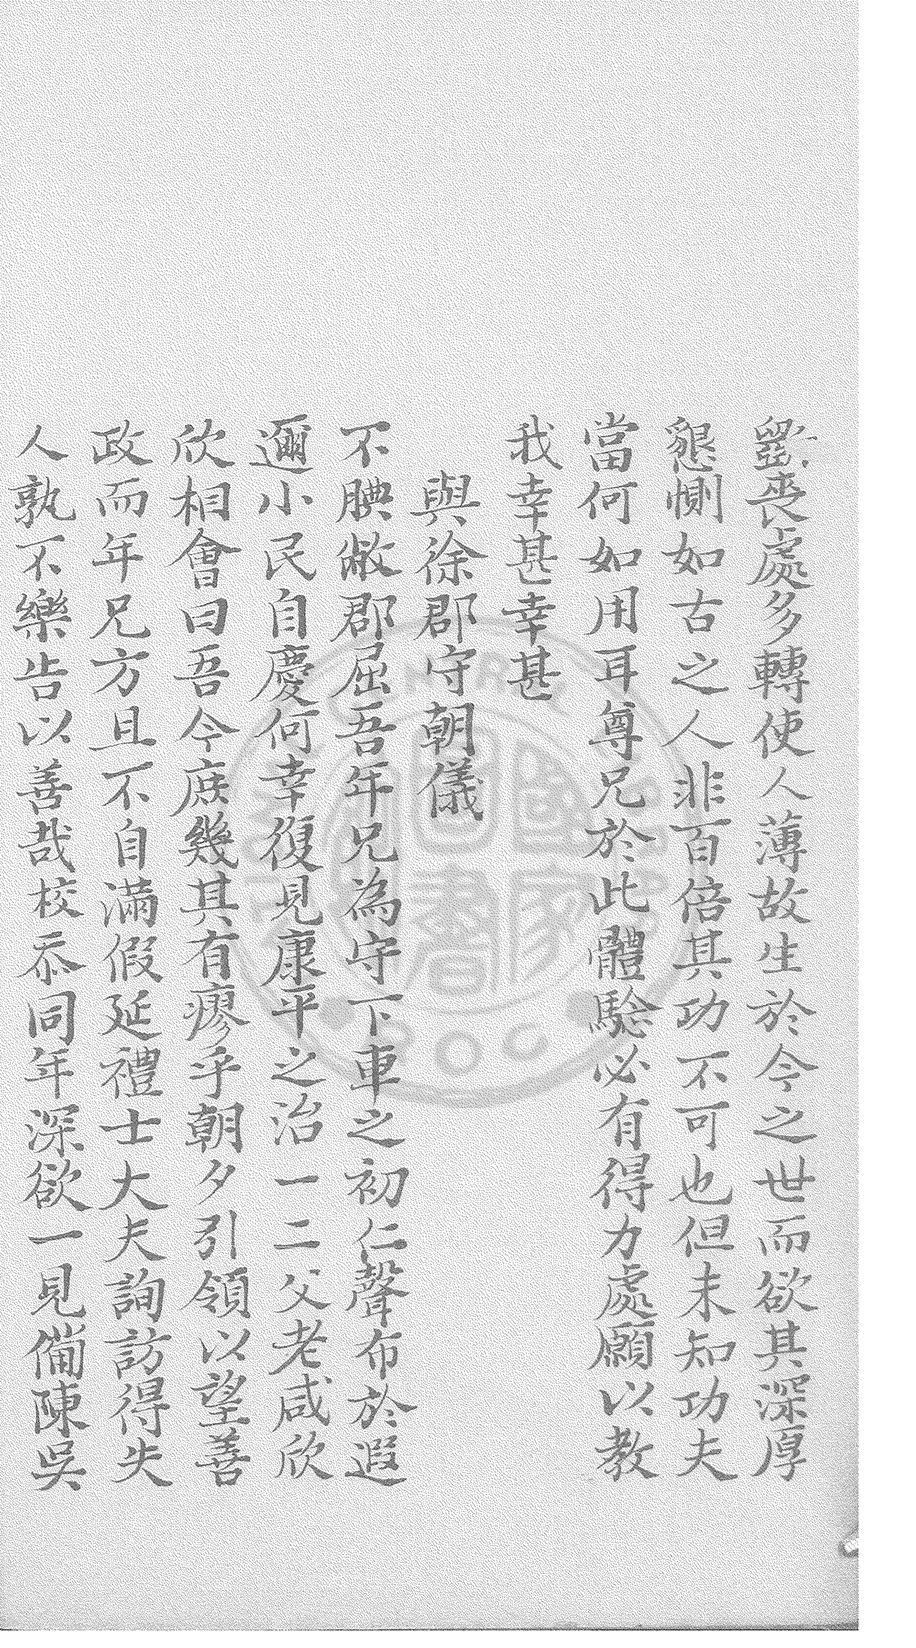 喪處多轉使人薄故生於今之世而欲其深厚
懇惻如古之人非百倍其功不可也但未知功夫
當何如用耳尊兄於此體驗必有得力處願以教
我幸甚幸甚
與徐郡守朝儀
不腆敝郡屈吾年兄為守下車之初仁聲布於遐
邇小民自慶何幸復見康平之治一二父老咸欣
欣相會曰吾今庶幾其有瘳乎朝夕引領以望善
政而年兄方且不自滿假延禮士大夫詢訪得失
人孰不樂告以善哉校忝同年深欲一見備陳吳
國家圖書